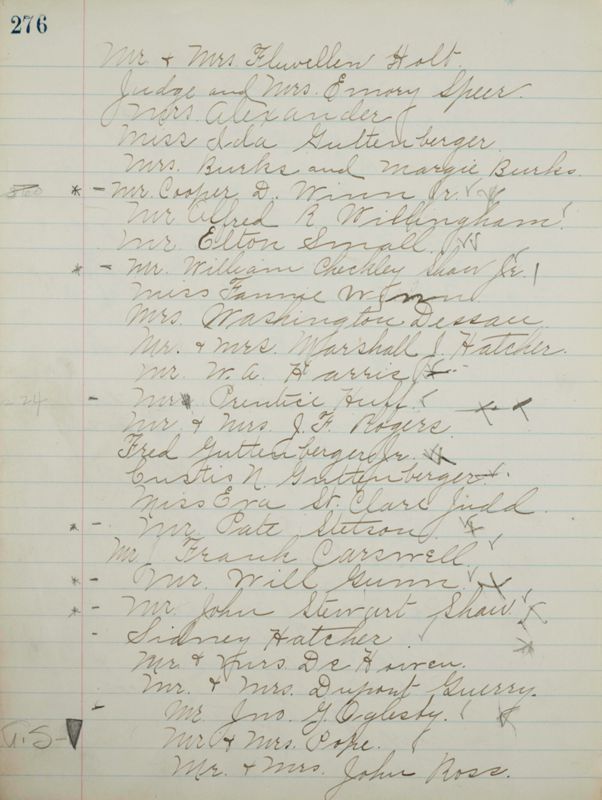 276
Mr & Mrs Fluvellen Holt.
Judge and Mrs. Emory Speer.
Mrs. Alexander
Miss Ida Guttenberger.
Mrs. Burks and Margie Burks.
Mr. Cooper D. Winn Jr.
Mr Alfred R Willingham.
Mr Elton Small.
Mr. William Checkley Shaw Jr.
Miss Fannie Winn
Mrs. Washington Dessau
Mr. & Mrs. Marshall J Hatcher.
Mr. W. A. Harris
24 - Mr Prentice Huff.
Mr. & Mrs. J. F. Rogers.
Fred Guttenberger Jr.
Curtis N. Guttenberger.
Miss Eva St. Clare Judd.
Mr Pate Stetson
Mr Frank Carswell.
Mr. Will Gunn
Mr John Stewart Shaw.
Sidney Hatcher
Mr. & Mrs. De Haven.
Mr. & Mrs. Dupont Guerry.
Mr. Jno. G. Oglesby.
Mr & Mrs. Pope.
Mr. & Mrs. John Ross.